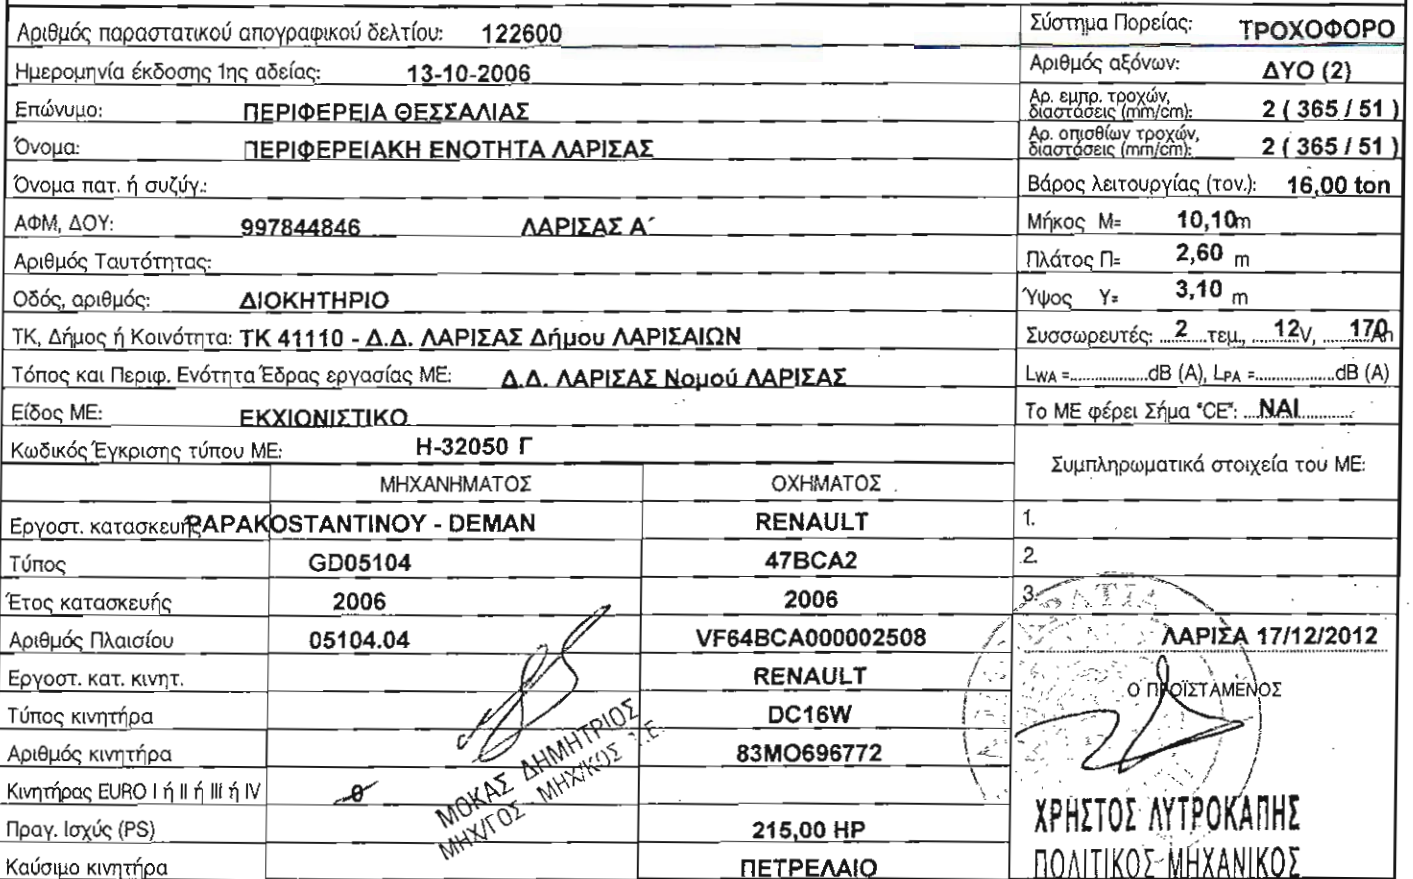 Αριθμός παραστατικού απογραφικού δελτίου: 122600
Ημερομηνία έκδοσης 1ης αδείας: 13-10-2006
Επώνυμο: ΠΕΡΙΦΕΡΕΙΑ ΘΕΣΣΑΛΙΑΣ
Όνομα: ΠΕΡΙΦΕΡΕΙΑΚΗ ΕΝΟΤΗΤΑ ΛΑΡΙΣΑΣ
Όνομα πατ. ή συζύγ.:
ΑΦΜ, ΔΟΥ: 997844846 ΛΑΡΙΣΑΣ Α΄
Αριθμός Ταυτότητας:
Οδός, αριθμός: ΔΙΟΚΗΤΗΡΙΟ
ΤΚ, Δήμος ή Κοινότητα: ΤΚ 41110 - Δ.Δ. ΛΑΡΙΣΑΣ Δήμου ΛΑΡΙΣΑΙΩΝ
Τόπος και Περιφ. Ενότητα Έδρας εργασίας ΜΕ: Δ.Δ. ΛΑΡΙΣΑΣ Νομού ΛΑΡΙΣΑΣ
Είδος ΜΕ: ΕΚΧΙΟΝΙΣΤΙΚΟ
Κωδικός Έγκρισης τύπου ΜΕ: Η-32050 Γ
ΜΗΧΑΝΗΜΑΤΟΣ ΟΧΗΜΑΤΟΣ
Εργοστ. κατασκευής PAPAKOSTANTINOU - DEMAN RENAULT
Τύπος GD05104 47BCA2
Έτος κατασκευής 2006 2006
Αριθμός Πλαισίου 05104.04 VF64BCA000002508
Εργοστ. κατ. κινητ. RENAULT
Τύπος κινητήρα DC16W
Αριθμός κινητήρα 83MO696772
Κινητήρας EURO I ή II ή III ή IV 0
Πραγ. Ισχύς (PS) 215,00 HP
Καύσιμο κινητήρα ΠΕΤΡΕΛΑΙΟ
ΜΟΚΑΣ ΔΗΜΗΤΡΙΟΣ
ΜΗΧ/ΓΟΣ - ΜΗΧ/ΚΟΣ Τ.Ε.
Σύστημα Πορείας: ΤΡΟΧΟΦΟΡΟ
Αριθμός αξόνων: ΔΥΟ (2)
Αρ. εμπρ. τροχών,
διαστάσεις (mm/cm): 2 ( 365 / 51 )
Αρ. οπισθίων τροχών,
διαστάσεις (mm/cm): 2 ( 365 / 51 )
Βάρος λειτουργίας (τον.): 16,00 ton
Μήκος Μ= 10,10m
Πλάτος Π= 2,60 m
Ύψος Υ= 3,10 m
Συσσωρευτές: 2 τεμ., 12V, 170Ah
LWA =.................dB (A), LPA =.................dB (A)
Το ΜΕ φέρει Σήμα "CE": ΝΑΙ
Συμπληρωματικά στοιχεία του ΜΕ:
1.
2.
3.
ΛΑΡΙΣΑ 17/12/2012
Ο ΠΡΟΪΣΤΑΜΕΝΟΣ
ΧΡΗΣΤΟΣ ΛΥΤΡΟΚΑΠΗΣ
ΠΟΛΙΤΙΚΟΣ ΜΗΧΑΝΙΚΟΣ